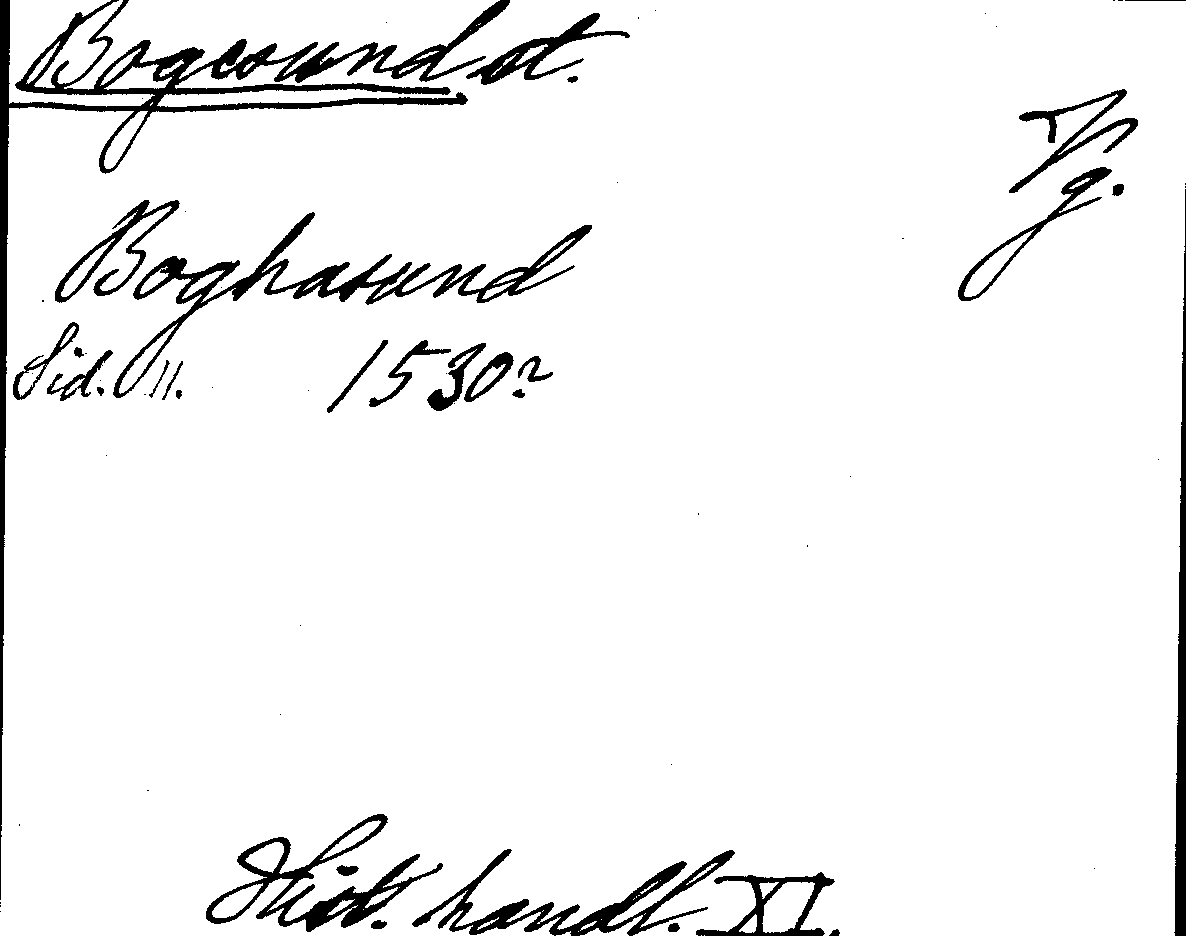 Bogesund st.
Vg.
Boghasund
Sid. 11. 1530?
Hist. handl. XI.